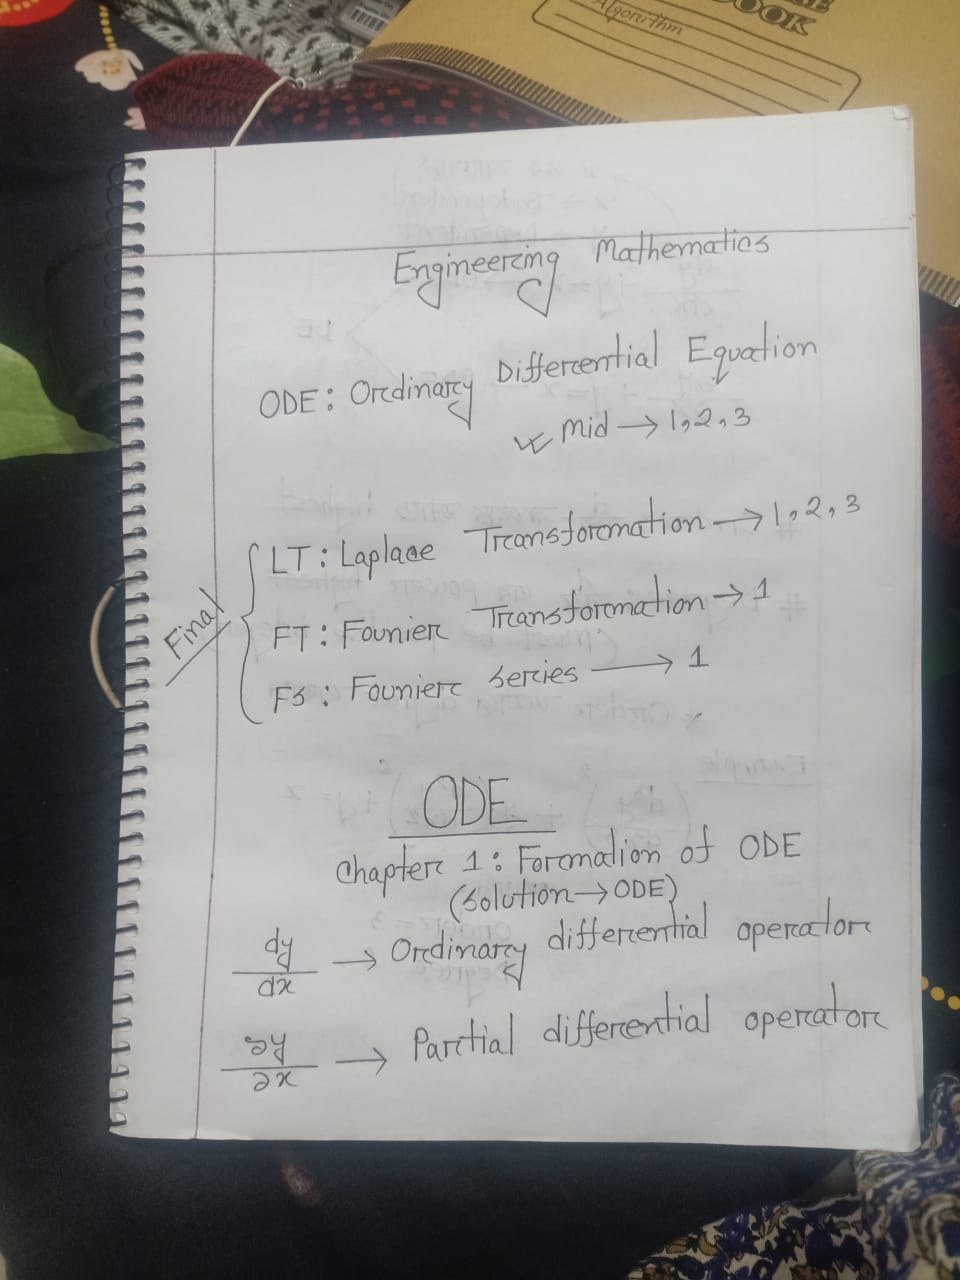 Algorithm
OOK
Engineering Mathematics
ODE: Ordinary Differential Equation
Mid → 1,2,3
Final
LT: Laplace Transformation → 1,2,3
FT: Founier Transformation → 1
FS: Founier series → 1
ODE
Chapter 1: Formation of ODE
(Solution → ODE)
dy/dx → Ordinary differential operator
∂y/∂x → Partial differential operator